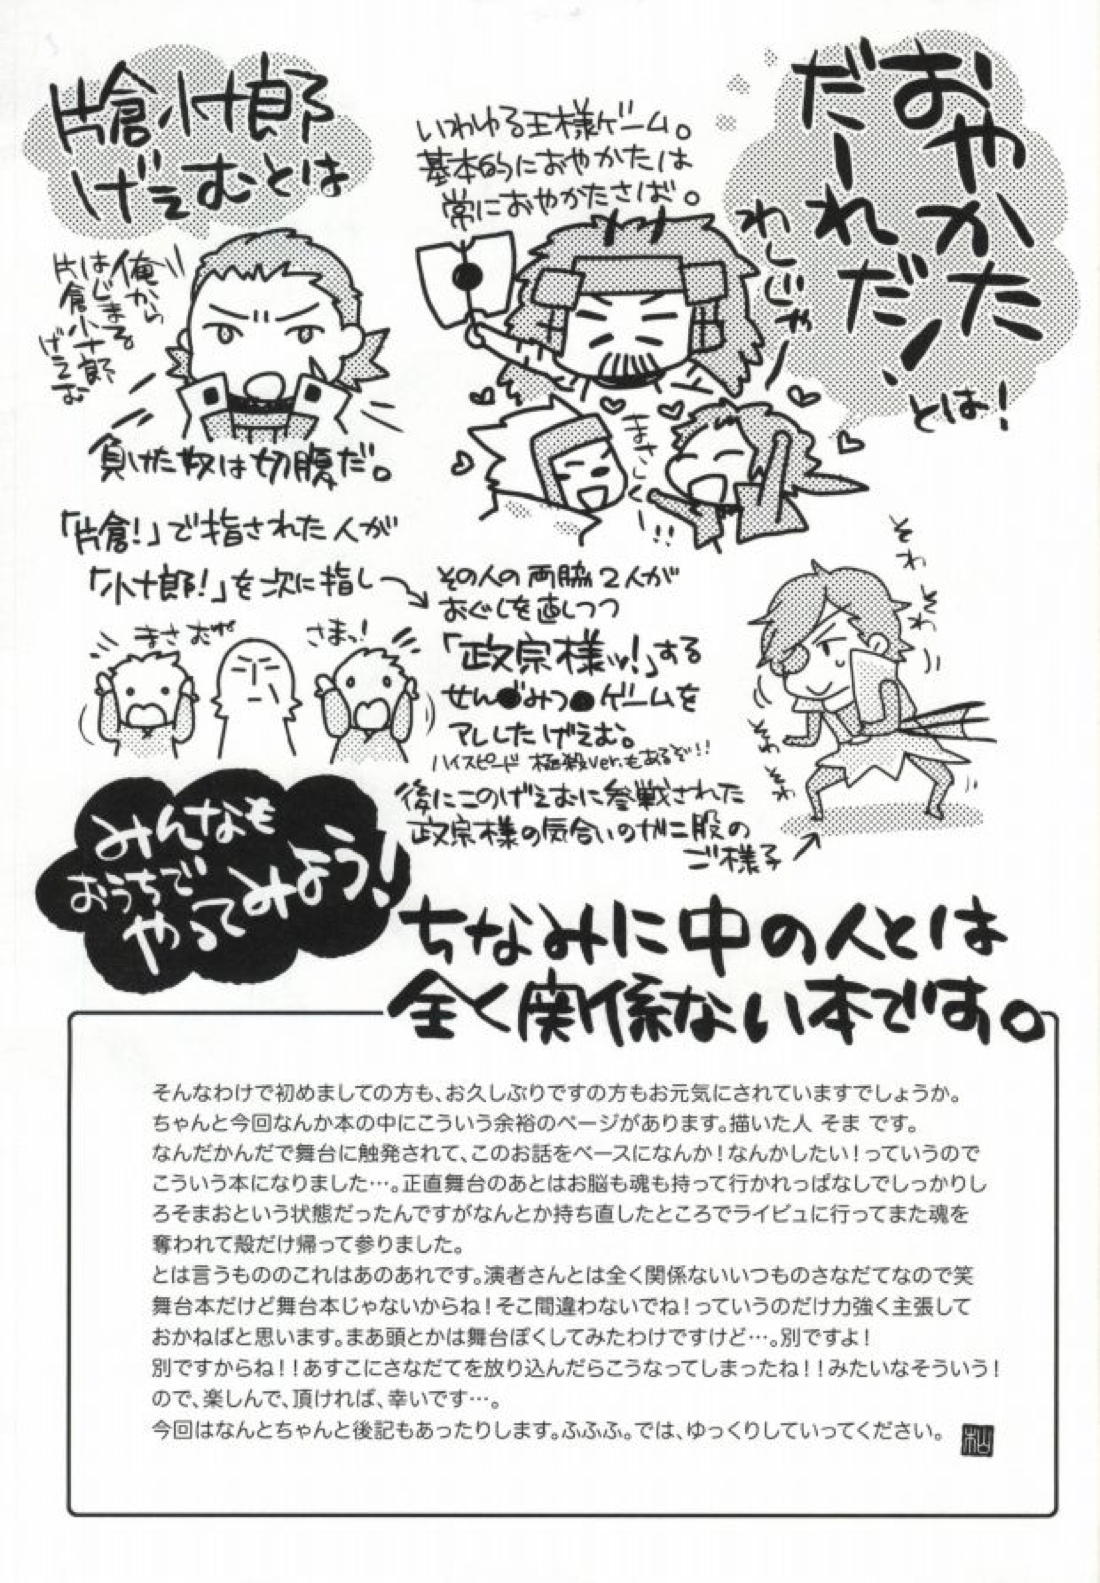 おやかた
だーれだ!
とは!
いわゆる王様ゲーム。
基本的におやかたは
常におやかたさば。
わしじゃー
まさしくー!!
片倉小十郎
げえむとは
俺から
はじまる。
片倉小十郎
げえむ
負けた奴は切腹だ。
「片倉!」で指された人が
「小十郎!」を次に指し
その人の両脇2人が
おぐしを直しつつ
「政宗様ッ!」する
せん●みつ●ゲームを
アレしたげえむ。
ハイスピード 極殺ver.もあるぞ!!
まさむね
さまっ!
そわ
そわ
そわ
そわ
後にこのげえむに参戦された
政宗様の気合いのガニ股の
ご様子
みんなも
おうちで
やってみよう!
ちなみに中の人とは
全く関係ない本です。
そんなわけで初めましての方も、お久しぶりですの方もお元気にされていますでしょうか。
ちゃんと今回なんか本の中にこういう余裕のページがあります。描いた人 そま です。
なんだかんだで舞台に触発されて、このお話をベースになんか!なんかしたい!っていうので
こういう本になりました…。正直舞台のあとはお脳も魂も持って行かれっぱなしでしっかりし
ろそまおという状態だったんですがなんとか持ち直したところでライビュに行ってまた魂を
奪われて殻だけ帰って参りました。
とは言うもののこれはあのあれです。演者さんとは全く関係ないいつものさなだてなので笑
舞台本だけど舞台本じゃないからね!そこ間違わないでね!っていうのだけ力強く主張して
おかねばと思います。まあ頭とかは舞台ぽくしてみたわけですけど…。別ですよ!
別ですからね!!あすこにさなだてを放り込んだらこうなってしまったね!!みたいなそういう!
ので、楽しんで、頂ければ、幸いです…。
今回はなんとちゃんと後記もあったりします。ふふふ。では、ゆっくりしていってください。